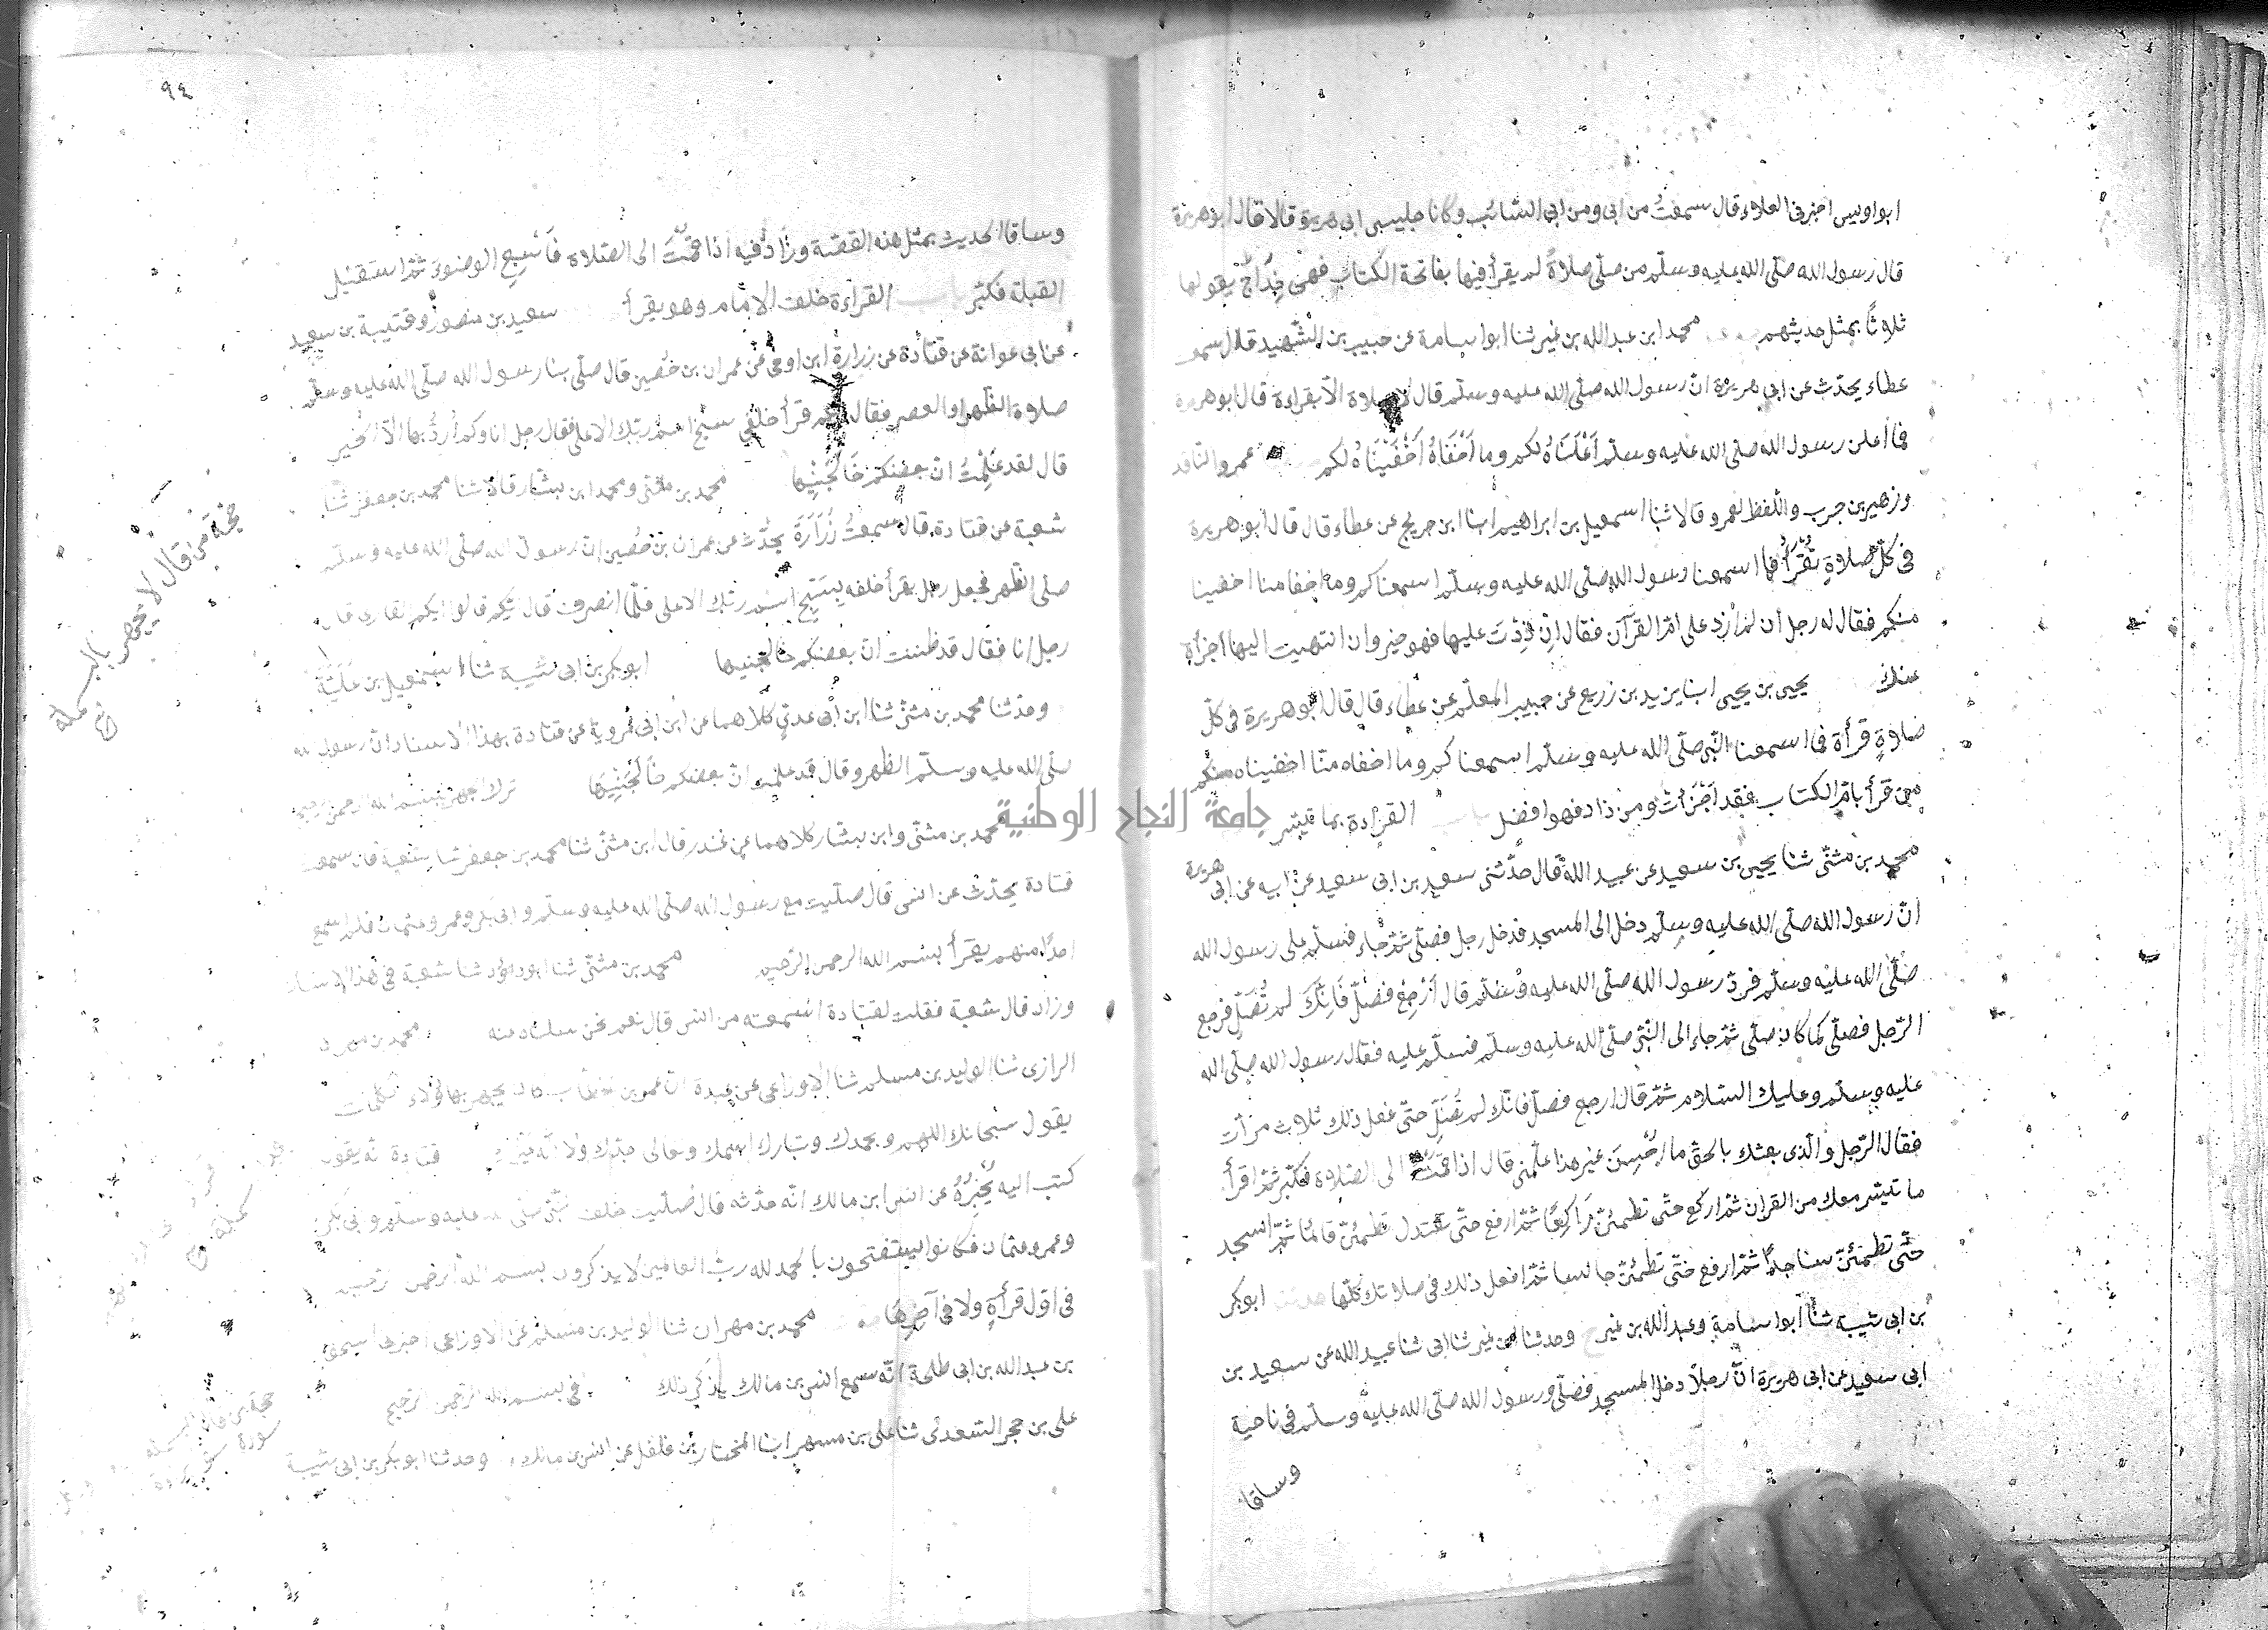 ابو اويس اخبرنى العلاء قال سمعت من ابى ومن ابى السائب وكانا جليسى ابى هريرة قالا قال ابو هريرة
قال رسول الله صلى الله عليه وسلم من صلى صلاةً لم يقرأ فيها بفاتحة الكتاب فهى خِدَاجٌ يقولها
ثلاثاً بمثل حديثهم محمد ابن عبد الله بن نمير ثنا ابو اسامة عن حبيب بن الشهيد قال سمعت
عطاء يحدّث عن ابى هريرة ان رسول الله صلى الله عليه وسلم قال لا صلاة الّا بقراءة قال ابو هريرة
فما أعلن رسول الله صلى الله عليه وسلم أَعْلَنَّاهُ لكم وما أَخْفَاهُ أَخْفَيْنَاهُ لكم عمرو الناقد
وزهير بن حرب واللفظ لعمرو قالا ثنا اسمعيل بن ابراهيم ابنا ابن جريج عن عطاء قال قال ابو هريرة
فى كلّ صلاةٍ تُقْرَأُ فما اسمعنا رسول الله صلى الله عليه وسلم اسمعناكم وما اخفا منا اخفينا
منكم فقال له رجل ان لم ازد على ام القرآن فقال اِنْ زِدْتَ عليها فهو خير وان انتهيت اليها أجزأت
عنك يحيى بن يحيى ابنا يزيد بن زريع عن حبيب المعلّم عن عطاء قال قال ابو هريرة فى كلّ
صلاةٍ قرأة فما اسمعنا النّبى صلى الله عليه وسلم اسمعناكم وما اخفاه منّا اخفيناه منكم
من قرأ بام الكتاب فقد اجْزَأَتْ ومن زاد فهو افضل باب القراءة بما تيسّر
محمد بن مثنّى ثنا يحيى بن سعيد عن عبيد الله قال حدّثنى سعيد بن ابى سعيد عن ابيه عن ابى هريرة
انّ رسول الله صلى الله عليه وسلم دخل الى المسجد فدخل رجل فصلّى ثمّ جاء فسلّم على رسول الله
صلى الله عليه وسلم فردّ رسول الله صلى الله عليه وسلم قال ارْجِعْ فصَلِّ فَانّكَ لم تُصَلِّ فرجع
الرّجل فصلّى كما كان صلى ثم جاء الى النّبىّ صلى الله عليه وسلم فسلّم عليه فقال رسول الله صلى الله
عليه وسلم وعليك السّلام ثمّ قال ارجع فصلّ فانّك لم تُصَلِّ حتّى فعل ذلك ثلاث مرّات
فقال الرّجل والّذى بعثك بالحقّ ما اُحْسِنُ غير هذا علّمنى قال اذا قُمْتَ الى الصّلاة فكبّر ثمّ اقرأ
ما تيسّر معك من القران ثمّ اركع حتّى تطمئنّ رَاكِعًا ثمّ ارفع حتّى تعتدل تطمئنّ قائمًا ثمّ اسجد
حتّى تطمئنّ ساجدًا ثمّ ارفع حتّى تطمئنّ جالسا ثمّ افعل ذلك فى صلاتك كلّها حدثنا ابو بكر
بن ابى شيبه ثنا ابو اسامة وعبد الله بن نمير ح وحدثنا ابن نمير ثنا ابى ثنا عبيد الله عن سعيد بن
ابى سعيد عن ابى هريرة انّ رجلاً دخل المسجد فصلّى ورسول الله صلى الله عليه وسلم فى ناحية
وساقا
٩٤
وساقا الحديث بمثل هذه القصّة وزَادَ فيه اذا قُمْتَ الى الصّلاة فَأَسْبِغِ الوضوءَ ثمّ استقبل
القبلة فكبّر باب القراءة خلف الامام وهو يقرأ سعيد بن منصور وقتيبة بن سعيد
عن ابى عوانة عن قتادة عن زرارة ابن اوفى عن عمران بن حُصَين قال صلّى بنا رسول الله صلى الله عليه وسلم
صلاة الظّهر او العصر فقال ايكم قرأ خلفى سبّح اسم ربّك الاعلى فقال رجل انا وكم أُرِدْ بها الّا الخير
قال لقد عَلِمْتُ انّ بعضكم خَالَجَنِيْهَا محمد بن مثنّى ومحمد ابن بشّار قالا ثنا محمد بن جعفر ثنا
شعبة عن قتادة قال سمعتُ زُرَارَةَ يحدّث عن عمران بن حُصين انّ رسول الله صلى الله عليه وسلم
صلى الظهر فجعل رجل يقرأ خلفه بسبّح اسم ربّك الاعلى فلمّا انصرف قال ايّكم قرأ او ايكم القارى قال
رجل انا فقال قد ظننت انّ بعضكم خالجنيها ابو بكر بن ابى شيبة ثنا اسمعيل بن عُلَيَّة
وحدثنا محمد بن مثنّى ثنا ابن أبى عدىّ كلاهما عن ابن ابى عروبة عن قتادة بهذا الاسناد انّ رسول الله
صلى الله عليه وسلم الظهر وقال قد علمت انّ بعضكم خَالَجَنِيْهَا ترك الجهر ببسم الله الرحمن الرحيم
محمد بن مثنّى وابن بشّار كلاهما عن غندر قال ابن مثنّى ثنا محمد بن جعفر ثنا شعبة قال سمعت
قتادة يحدّث عن انس قال صلّيت مع رسول الله صلى الله عليه وسلم وابى بكر وعمر وعثمان فلم اسمع
احدًا منهم يقرأ بسم الله الرحمن الرّحيم محمد بن مثنّى ثنا ابو داؤد ثنا شعبة فى هذا الاسناد
وزاد قال شعبة فقلت لقتادة اسمعته من انس قال نعم نحن سألناه عنه محمد بن مهران
الرازى ثنا الوليد بن مسلم ثنا الاوزاعى عن عبدة انّ عمر بن خطّاب كان يجهر بهؤلاء الكلمات
يقول سبحانك اللهم وبحمدك وتبارك اسمك وتعالى جدّك ولا اله غيرك قتادة
كتب اليه يُخْبِرُهُ عن انس ابن مالك انّه حدّثه قال صلّيت خلف النبى صلى الله عليه وسلم وابى بكر
وعمر وعثمان فكانوا يستفتحون بالحمد لله ربّ العالمين لا يذكرون بسم الله الرحمن الرّحيم
فى اوّل قرأةٍ ولا فى آخرها محمد بن مهران ثنا الوليد بن مسلم عن الاوزاعى اخبرنى اسحق
بن عبد الله بن ابى طلحة انّه سمع انس بن مالك يذكر ذلك فى بسم الله الرّحمن الرّحيم
على بن حجر السّعدىّ ثنا على بن مسهر ابنا المختار بن فلفل عن انس بن مالك وحدثنا ابو بكر بن ابى شيبة
حجّة من قال لا يجهر بالبسملة
جامعة النجاح الوطنية